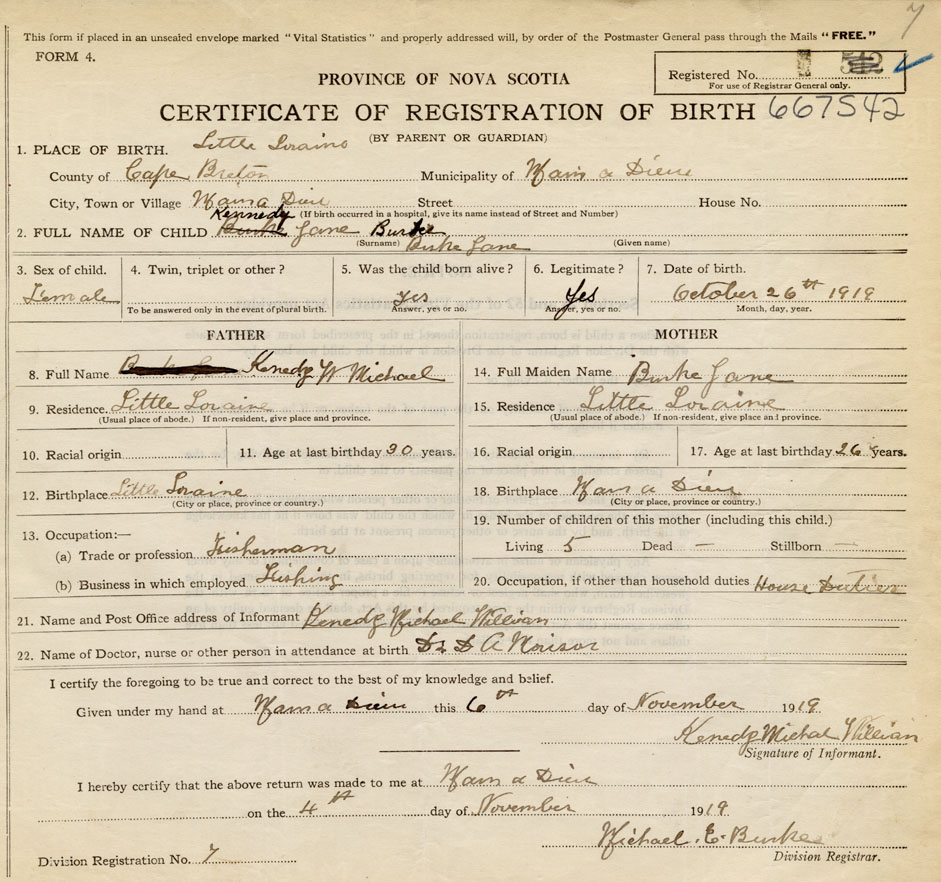 7
This form if placed in an unsealed envelope marked "Vital Statistics" and properly addressed will, by order of the Postmaster General pass through the Mails "FREE."
FORM 4.
Registered No. 542
For use of Registrar General only.
PROVINCE OF NOVA SCOTIA
CERTIFICATE OF REGISTRATION OF BIRTH 667542
(BY PARENT OR GUARDIAN)
1. PLACE OF BIRTH. Little Loraine
County of Cape Breton Municipality of Main a Dieu
City, Town or Village Main a Dieu Street House No.
(If birth occurred in a hospital, give its name instead of Street and Number)
2. FULL NAME OF CHILD Kennedy Burke Jane Burke
(Surname) Burke Jane (Given name)
3. Sex of child. 4. Twin, triplet or other? 5. Was the child born alive? 6. Legitimate? 7. Date of birth.
Female yes Yes October 26th 1919
To be answered only in the event of plural birth. Answer, yes or no. Answer, yes or no. Month, day, year.
FATHER MOTHER
8. Full Name Kenedy W Michael 14. Full Maiden Name Burke Jane
9. Residence. Little Loraine 15. Residence Little Loraine
(Usual place of abode.) If non-resident, give place and province. (Usual place of abode.) If non-resident, give place and province.
10. Racial origin 11. Age at last birthday 30 years. 16. Racial origin 17. Age at last birthday 26 years.
12. Birthplace Little Loraine 18. Birthplace Main a Dieu
(City or place, province or country.) (City or place, province or country.)
13. Occupation:— 19. Number of children of this mother (including this child.)
(a) Trade or profession Fisherman Living 5 Dead — Stillborn —
(b) Business in which employed Fishing 20. Occupation, if other than household duties House Duties
21. Name and Post Office address of Informant Kenedy Michael Willian
22. Name of Doctor, nurse or other person in attendance at birth Dr D A Morison
I certify the foregoing to be true and correct to the best of my knowledge and belief.
Given under my hand at Main a Dieu this 6th day of November 1919
Kenedy Michal Willian
Signature of Informant.
I hereby certify that the above return was made to me at Main a Dieu
on the 4th day of November 1919
Michael E. Burke
Division Registration No. 7 Division Registrar.